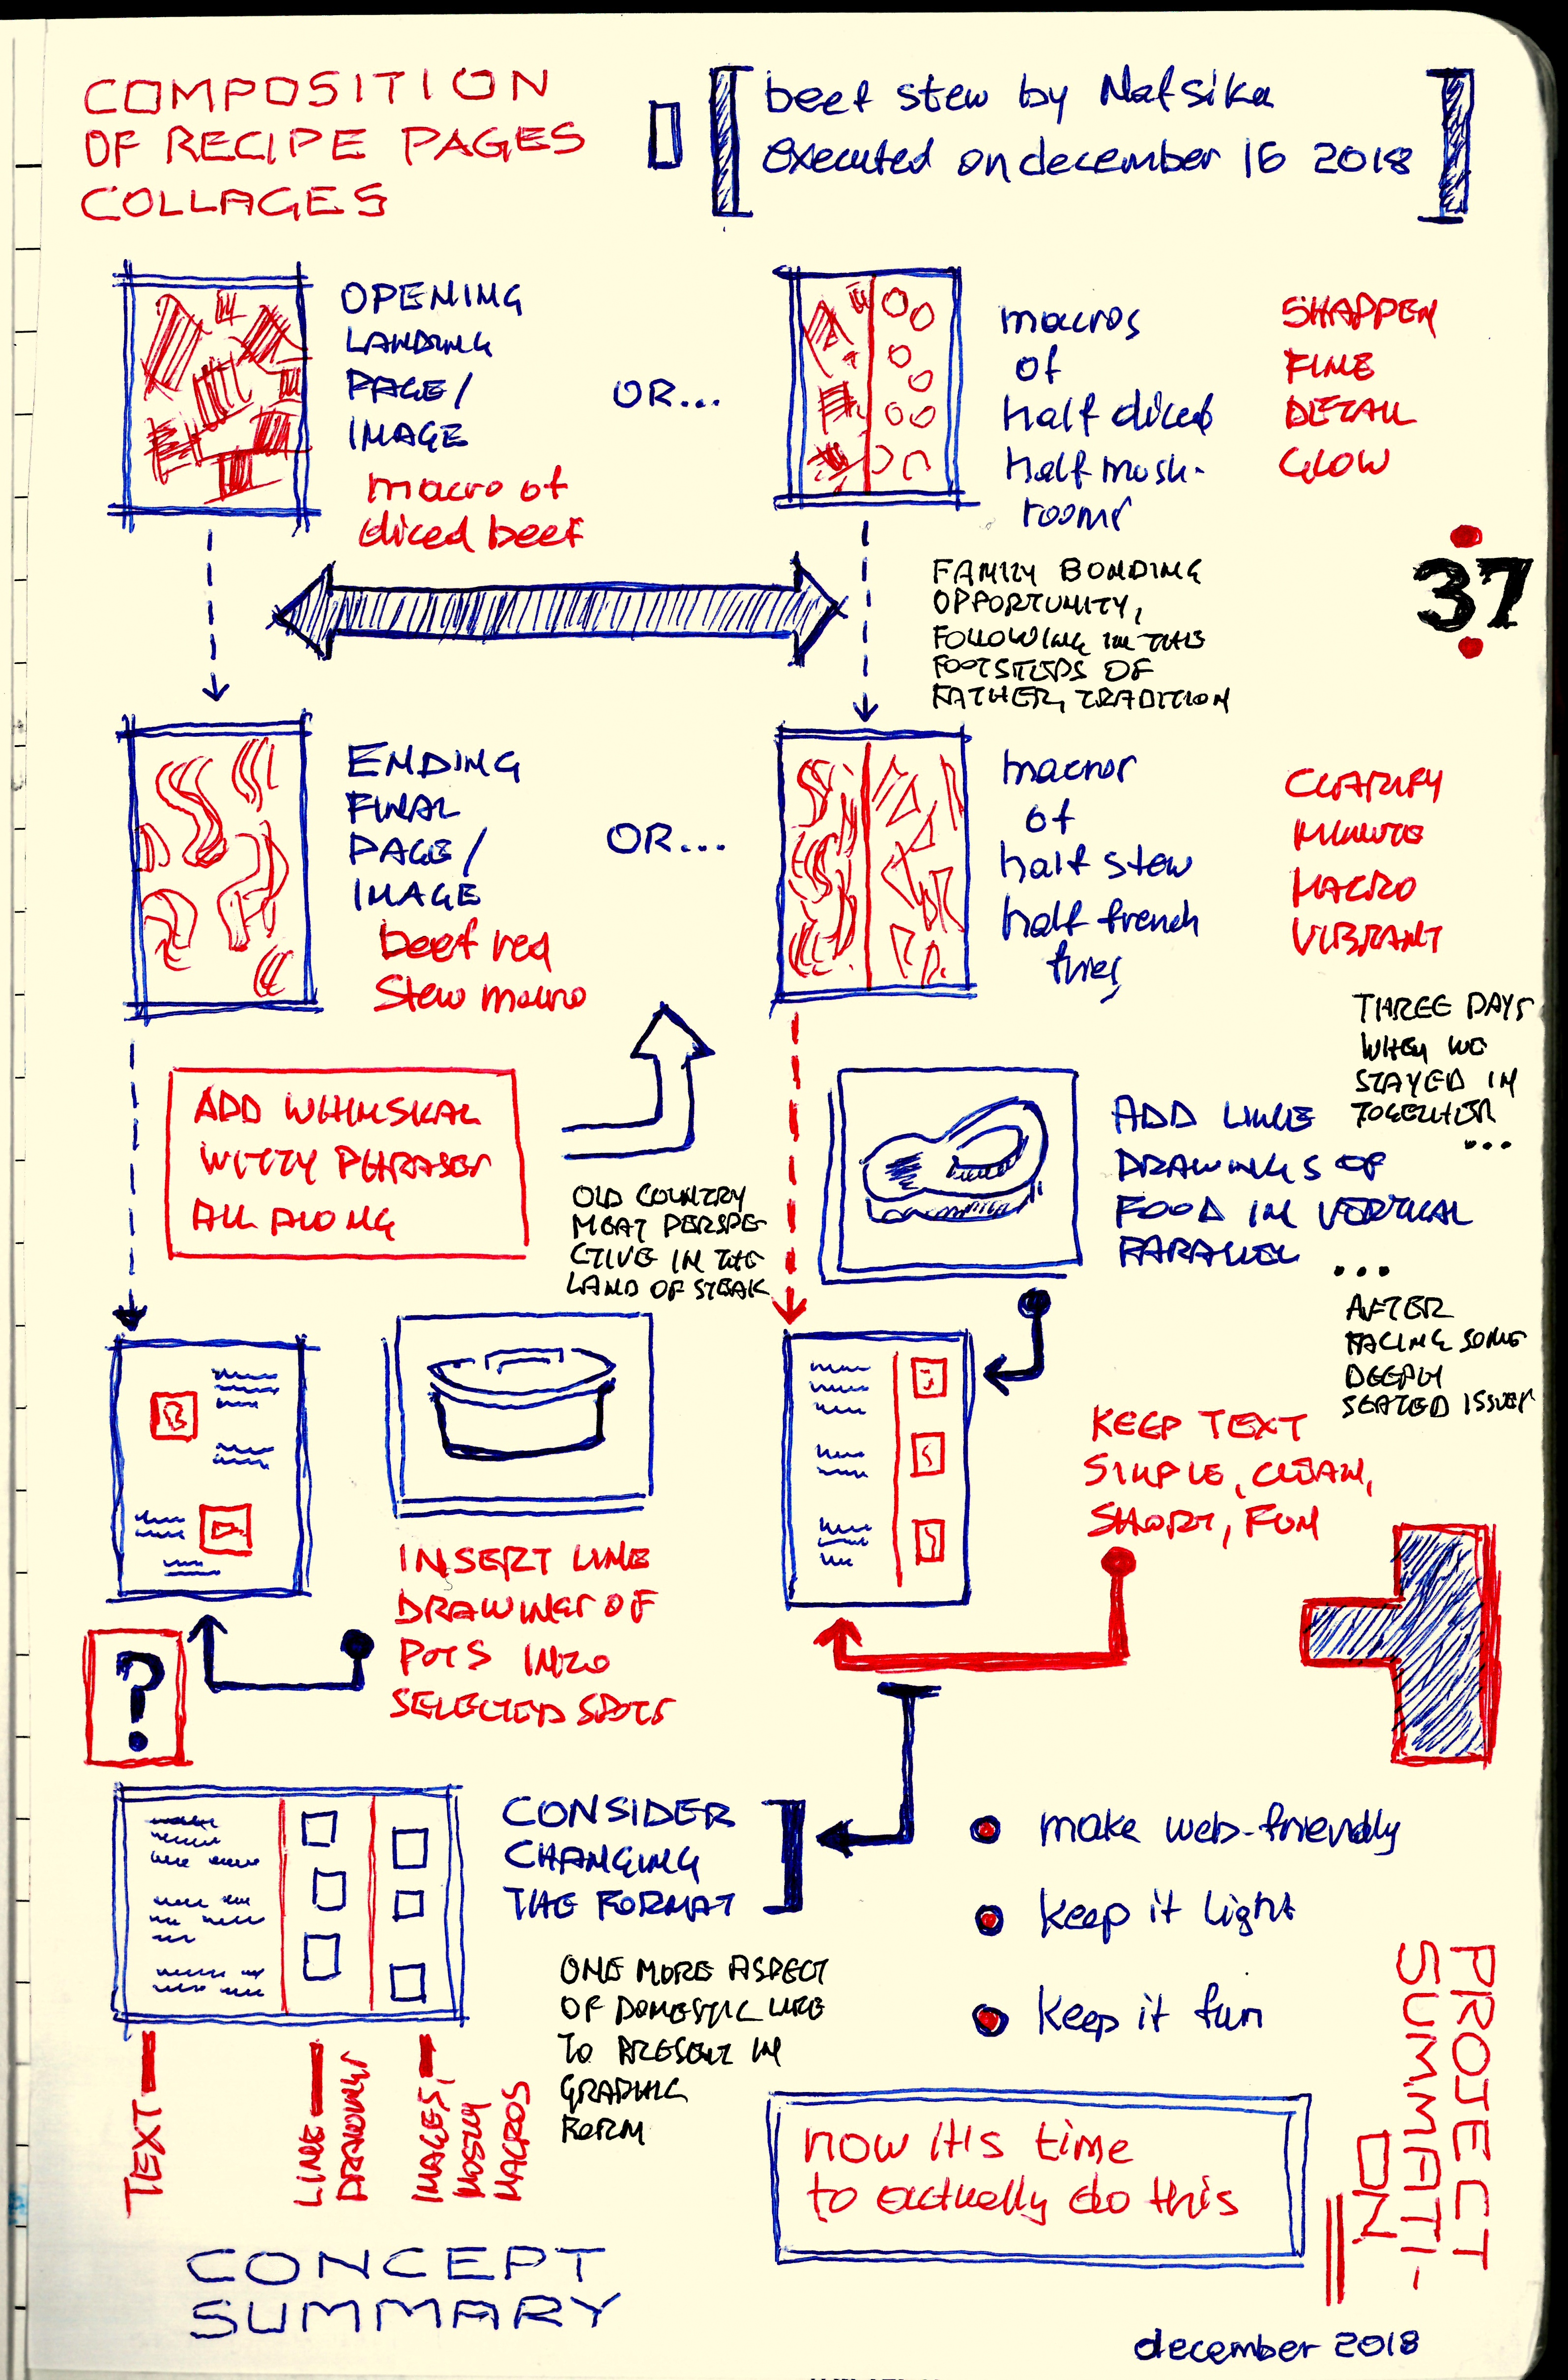 COMPOSITION
OF RECIPE PAGES
COLLAGES
beef stew by Natsika
executed on december 16 2018
OPENING
LANDING
PAGE/
IMAGE
macro of
diced beef
OR...
macros
of
half diced
half mush-
rooms
SHAPPEN
FINE
DETAIL
GLOW
37
FAMILY BONDING
OPPORTUNITY,
FOLLOWING IN THE
FOOTSTEPS OF
FATHER, TRADITION
ENDING
FINAL
PAGE/
IMAGE
beef red
stew macro
OR...
macros
of
half stew
half french
fries
CLARIFY
MINUTE
MACRO
VIBRANT
THREE DAYS
WHEN WE
STAYED IN
TOGETHER
...
ADD WHIMSKAL
WITTY PHRASES
ALL ALONG
OLD COUNTRY
MEAT PERSPE-
CTIVE IN THE
LAND OF STEAK
ADD LINE
DRAWINGS OF
FOOD IN VERTICAL
PARALLEL
...
AFTER
FACING SOME
DEEPLY
SEATED ISSUES
KEEP TEXT
SIMPLE, CLEAN,
SHORT, FUN
INSERT LINE
DRAWINGS OF
POTS INTO
SELECTED SPOTS
?
CONSIDER
CHANGING
THE FORMAT
make web-friendly
keep it light
keep it fun
ONE MORE ASPECT
OF DOMESTIC LIFE
TO PRESENT IN
GRAPHIC
FORM
TEXT
LINE
DRAWINGS
IMAGES,
MOSTLY
MACROS
now it's time
to actually do this
PROJECT
SUMMATI-
ON
CONCEPT
SUMMARY
december 2018